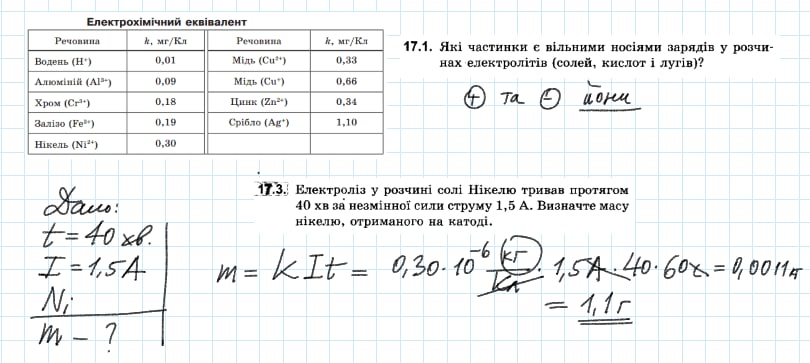 Електрохімічний еквівалент
Речовина k, мг/Кл Речовина k, мг/Кл
Водень (H⁺) 0,01 Мідь (Cu²⁺) 0,33
Алюміній (Al³⁺) 0,09 Мідь (Cu⁺) 0,66
Хром (Cr³⁺) 0,18 Цинк (Zn²⁺) 0,34
Залізо (Fe³⁺) 0,19 Срібло (Ag⁺) 1,10
Нікель (Ni²⁺) 0,30
17.1. Які частинки є вільними носіями зарядів у розчи-
нах електролітів (солей, кислот і лугів)?
⊕ та ⊖ йони
17.3. Електроліз у розчині солі Нікелю тривав протягом
40 хв за незмінної сили струму 1,5 А. Визначте масу
нікелю, отриманого на катоді.
Дано:
t = 40 хв.
I = 1,5 А
Ni
m - ?
m = kIt = 0,30·10⁻⁶ кг/Кл · 1,5А · 40·60с = 0,0011кг
= 1,1г